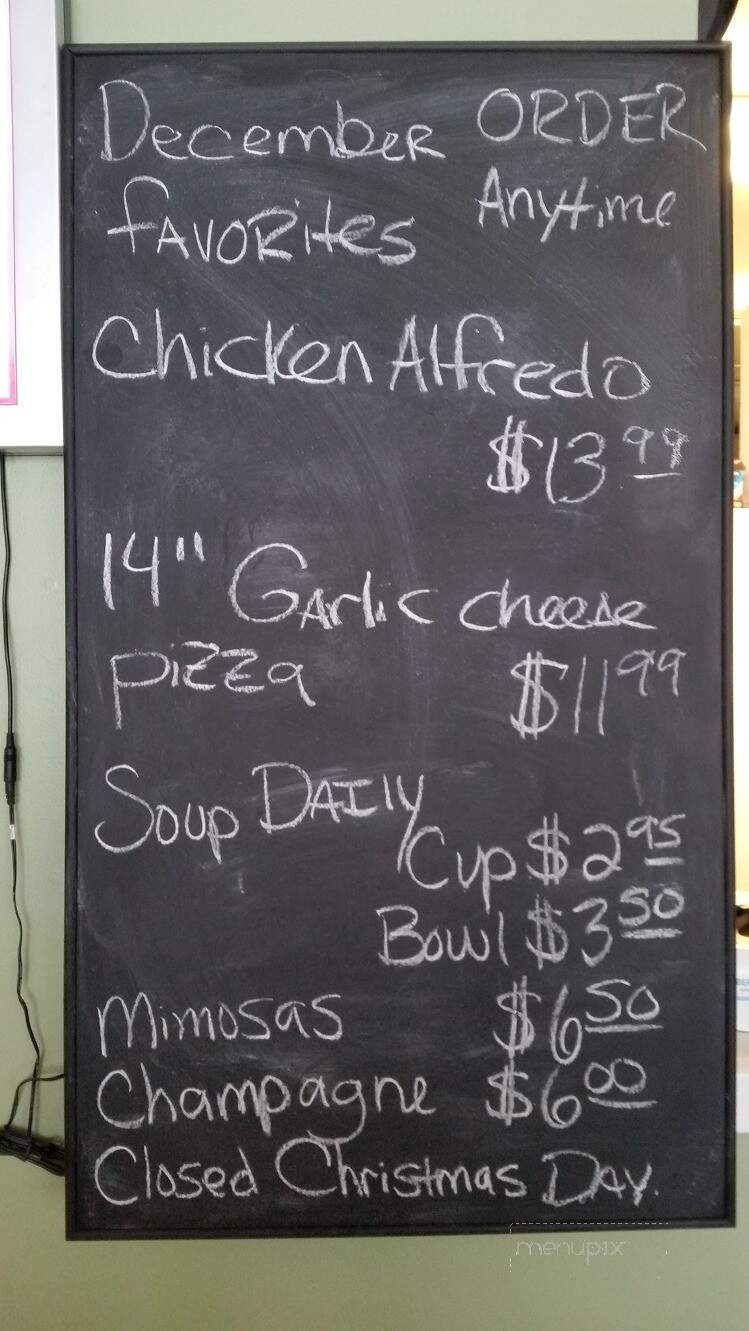 December ORDER
FAVORites Anytime
Chicken Alfredo
$13 99
14" GArlic cheese
pizza $11 99
Soup DAILY
Cup $2 95
Bowl $3 50
Mimosas $6 50
Champagne $6 00
Closed Christmas DAY.
menupix